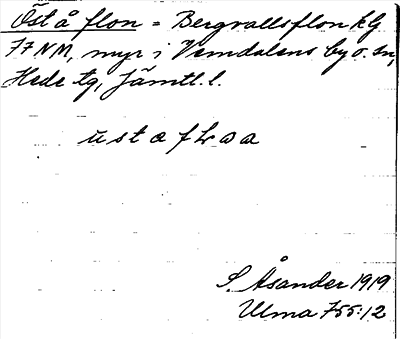 Ostå flon = Bergvallsflon kG
77NM, myr i Vemdalens by o. sn,
Hede tg, Jämtl. l.
ūstafLoa
S. Åsander 1919
Ulma 755:12